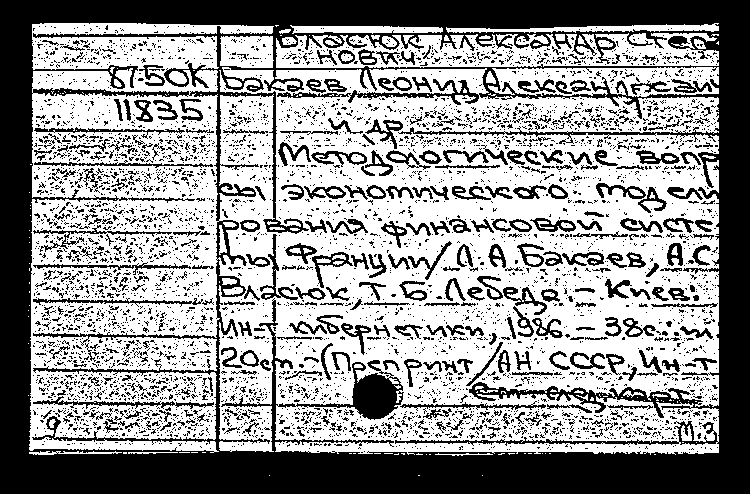 Власюк, Александр Степа
нович
87-50К Бакаев, Леонид Александрович
11835
и др.
Методологические вопр
сы экономического модели
рования финансовой систе
мы Франции/Л.А.Бакаев, А.С.
Власюк, Т.Б.Лебеда.– Киев:
Ин-т кибернетики, 1986.– 38с.:ил.
20см.–(Препринт/АН СССР, Ин-т
см. след. карт.
9 М.З